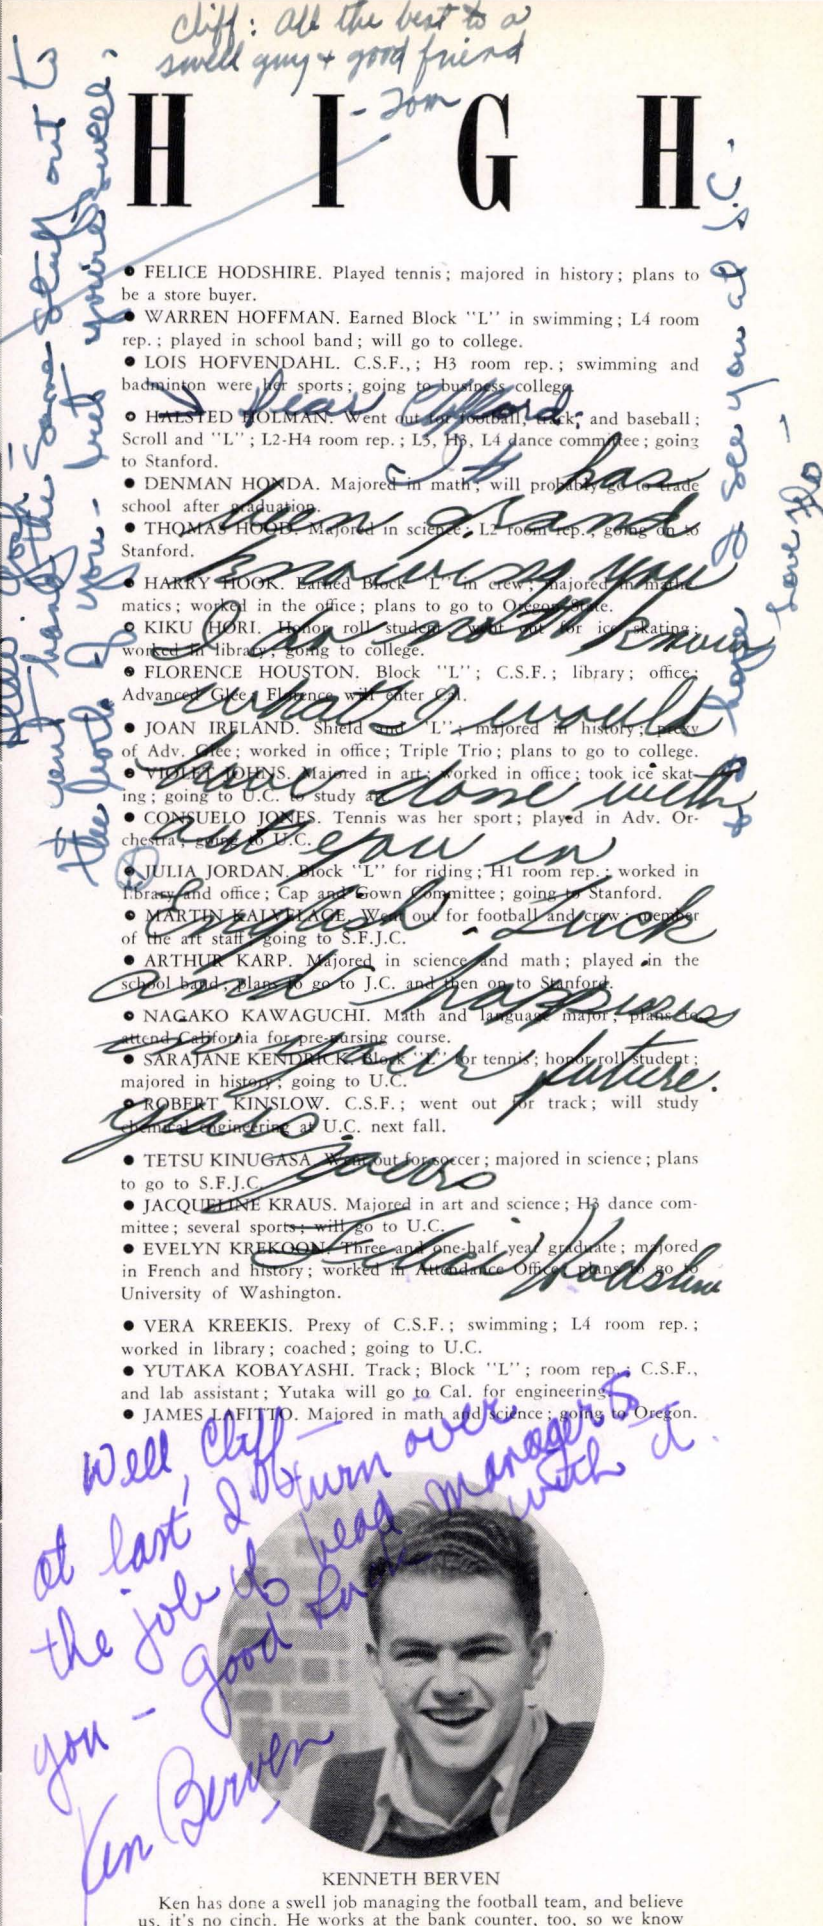 Cliff: All the best to a
swell guy & good friend
- Tom
HIGH
● FELICE HODSHIRE. Played tennis; majored in history; plans to
be a store buyer.
● WARREN HOFFMAN. Earned Block "L" in swimming; L4 room
rep.; played in school band; will go to college.
● LOIS HOFVENDAHL. C.S.F.,; H3 room rep.; swimming and
badminton were her sports; going to business college.
● HALSTED HOLMAN. Went out for football, track, and baseball;
Scroll and "L"; L2-H4 room rep.; L3, H3, L4 dance committee; going
to Stanford.
● DENMAN HONDA. Majored in math; will probably go to trade
school after graduation.
● THOMAS HOOD. Majored in science; L2 room rep., going on to
Stanford.
● HARRY HOOK. Earned Block "L" in crew; majored in mathe-
matics; worked in the office; plans to go to Oregon State.
● KIKU HORI. Honor roll student; went out for ice skating;
worked in library; going to college.
● FLORENCE HOUSTON. Block "L"; C.S.F.; library; office;
Advanced Glee; Florence will enter Cal.
● JOAN IRELAND. Shield and "L"; majored in history; proxy
of Adv. Glee; worked in office; Triple Trio; plans to go to college.
● VIOLET JOHNS. Majored in art; worked in office; took ice skat-
ing; going to U.C. to study art.
● CONSUELO JONES. Tennis was her sport; played in Adv. Or-
chestra; going to U.C.
● JULIA JORDAN. Block "L" for riding; H1 room rep.; worked in
library and office; Cap and Gown Committee; going to Stanford.
● MARTIN KALVELAGE. Went out for football and crew; member
of the art staff; going to S.F.J.C.
● ARTHUR KARP. Majored in science and math; played in the
school band; plans to go to J.C. and then on to Stanford.
● NAGAKO KAWAGUCHI. Math and language major; plans to
attend California for pre-nursing course.
● SARAJANE KENDRICK. Block "L" for tennis; honor roll student;
majored in history; going to U.C.
● ROBERT KINSLOW. C.S.F.; went out for track; will study
chemical engineering at U.C. next fall.
● TETSU KINUGASA. Went out for soccer; majored in science; plans
to go to S.F.J.C.
● JACQUELINE KRAUS. Majored in art and science; H3 dance com-
mittee; several sports; will go to U.C.
● EVELYN KREKOON. Three and one-half year graduate; majored
in French and history; worked in Attendance Office; plans to go to
University of Washington.
● VERA KREEKIS. Prexy of C.S.F.; swimming; L4 room rep.;
worked in library; coached; going to U.C.
● YUTAKA KOBAYASHI. Track; Block "L"; room rep.; C.S.F.,
and lab assistant; Yutaka will go to Cal. for engineering.
● JAMES LAFITTO. Majored in math and science; going to Oregon.
Dear Clifford,
It has
been grand
knowing you
I do not know
what I would
have done with
out you in
English. Luck
and happiness
in your future
years.
Yours
Felice Hodshire
hand the same stuff out to
the both of you - but you're swell.
& hope I see you at J.C.
Love Flo -
Well, Cliff -
at last I turn over
the job of head managers
you - good luck with it.
Ken Berven
KENNETH BERVEN
Ken has done a swell job managing the football team, and believe
us, it's no cinch. He works at the bank counter, too, so we know